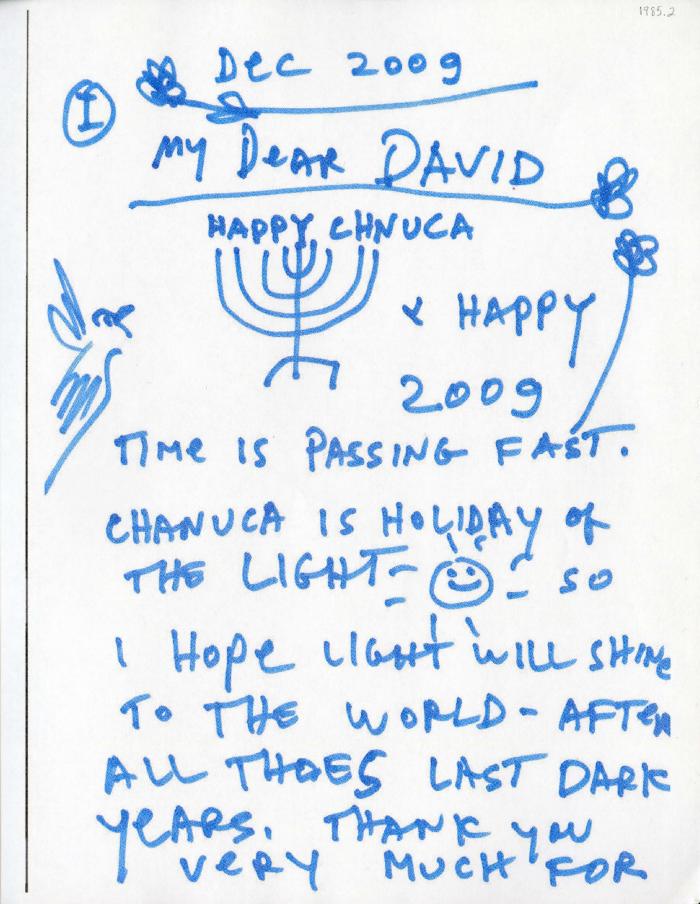 1985.2
Dec 2009
I
My Dear DAVID
HAPPY CHNUCA
& HAPPY
2009
TIMe IS PASSING FAST.
CHANUCA IS HOLIDAY of
THE LIGHT - SO
I Hope LIGHT WILL SHINe
TO THE WORLD - AFTeR
ALL THOES LAST DARK
YeARS. THANK you
VeRY MUCH FOR